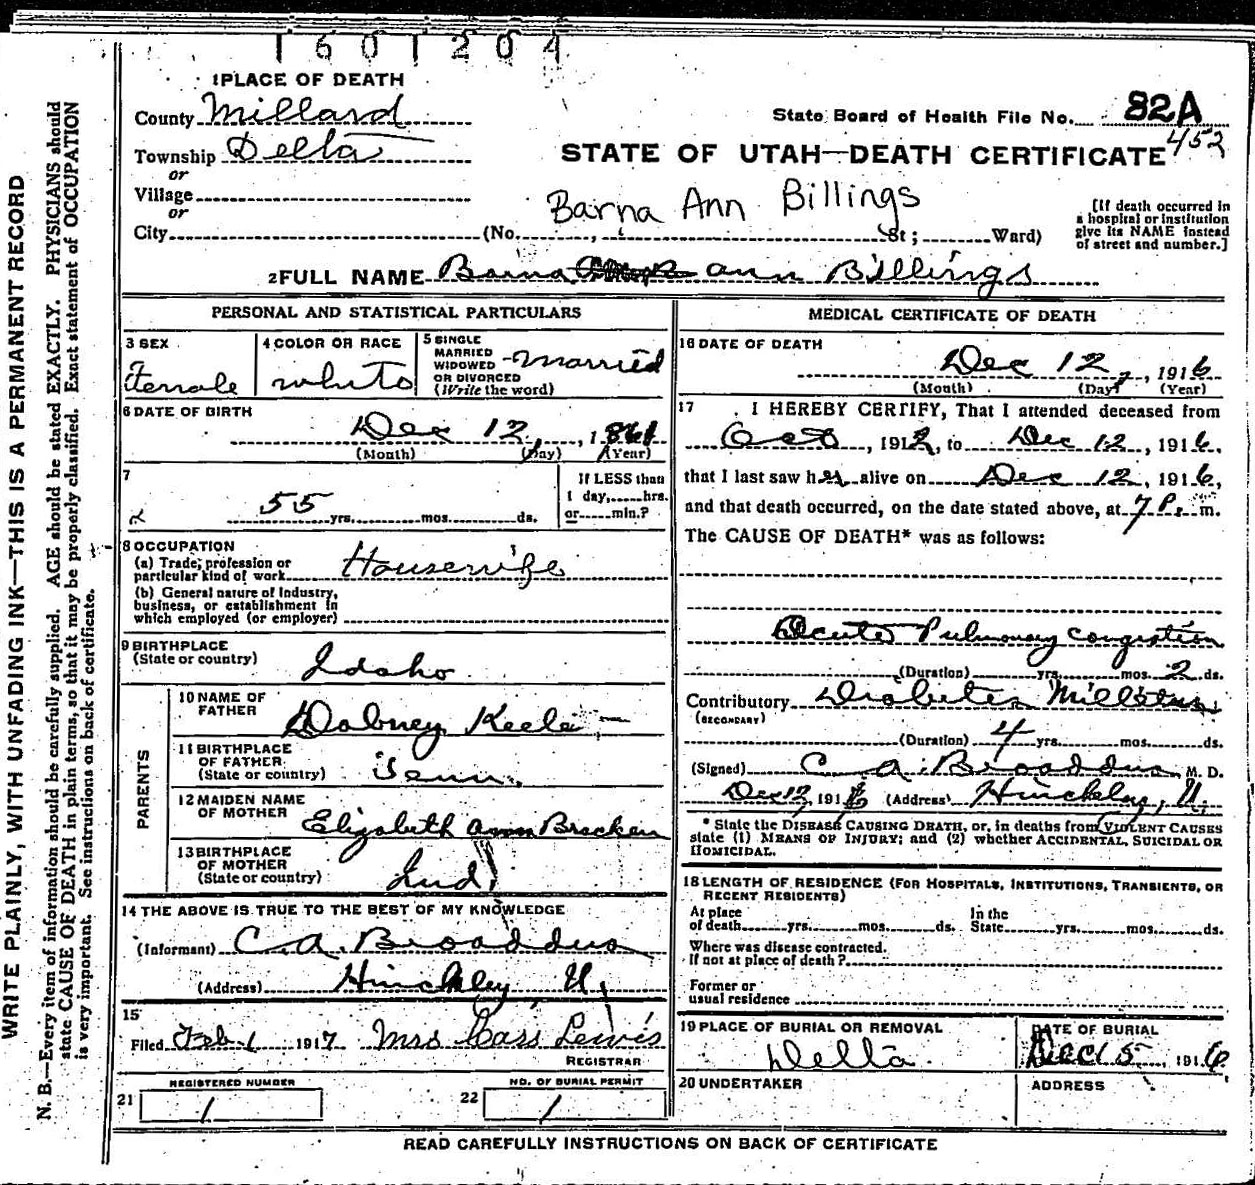 1601204
1 PLACE OF DEATH
County Millard
State Board of Health File No. 82A
452
Township Delta
STATE OF UTAH—DEATH CERTIFICATE
or
Village
or
Barna Ann Billings
City (No. , St; Ward)
[If death occurred in
a hospital or institution
give its NAME instead
of street and number.]
2 FULL NAME Barna Ann Billings
PERSONAL AND STATISTICAL PARTICULARS
3 SEX
Female
4 COLOR OR RACE
white
5 SINGLE
MARRIED
WIDOWED
OR DIVORCED
(Write the word)
Married
6 DATE OF BIRTH
Dec 12, 1861
(Month) (Day) (Year)
7
55 yrs. mos. ds.
If LESS than
1 day, hrs.
or min.?
8 OCCUPATION
(a) Trade, profession or
particular kind of work Housewife
(b) General nature of Industry,
business, or establishment in
which employed (or employer)
9 BIRTHPLACE
(State or country) Idaho
PARENTS
10 NAME OF
FATHER Dabney Keele
11 BIRTHPLACE
OF FATHER
(State or country) Tenn.
12 MAIDEN NAME
OF MOTHER Elizabeth Ann Bracken
13 BIRTHPLACE
OF MOTHER
(State or country) Ind.
14 THE ABOVE IS TRUE TO THE BEST OF MY KNOWLEDGE
(Informant) C. A. Broaddus
(Address) Hinckley, U.
15
Filed Feb 1 1917 Mrs Cass Lewis
REGISTRAR
REGISTERED NUMBER
21 1
NO. OF BURIAL PERMIT
22 1
MEDICAL CERTIFICATE OF DEATH
16 DATE OF DEATH
Dec 12, 1916
(Month) (Day) (Year)
17 I HEREBY CERTIFY, That I attended deceased from
Oct, 1912, to Dec 12, 1916,
that I last saw her alive on Dec 12, 1916,
and that death occurred, on the date stated above, at 7 P. m.
The CAUSE OF DEATH* was as follows:
Acute Pulmonary Congestion
(Duration) yrs. mos. 2 ds.
Contributory Diabetes Millitus
(SECONDARY)
(Duration) 4 yrs. mos. ds.
(Signed) C. A. Broaddus M. D.
Dec 12, 1916 (Address) Hinckley, U.
* State the DISEASE CAUSING DEATH, or, in deaths from VIOLENT CAUSES
state (1) MEANS OF INJURY; and (2) whether ACCIDENTAL, SUICIDAL OR
HOMICIDAL.
18 LENGTH OF RESIDENCE (FOR HOSPITALS, INSTITUTIONS, TRANSIENTS, OR
RECENT RESIDENTS)
At place
of death yrs. mos. ds.
In the
State yrs. mos. ds.
Where was disease contracted.
If not at place of death?
Former or
usual residence
19 PLACE OF BURIAL OR REMOVAL
Delta
DATE OF BURIAL
Dec 15, 1916
20 UNDERTAKER
ADDRESS
READ CAREFULLY INSTRUCTIONS ON BACK OF CERTIFICATE
WRITE PLAINLY, WITH UNFADING INK—THIS IS A PERMANENT RECORD
N. B.—Every item of information should be carefully supplied. AGE should be stated EXACTLY. PHYSICIANS should
state CAUSE OF DEATH in plain terms, so that it may be properly classified. Exact statement of OCCUPATION
is very important. See instructions on back of certificate.